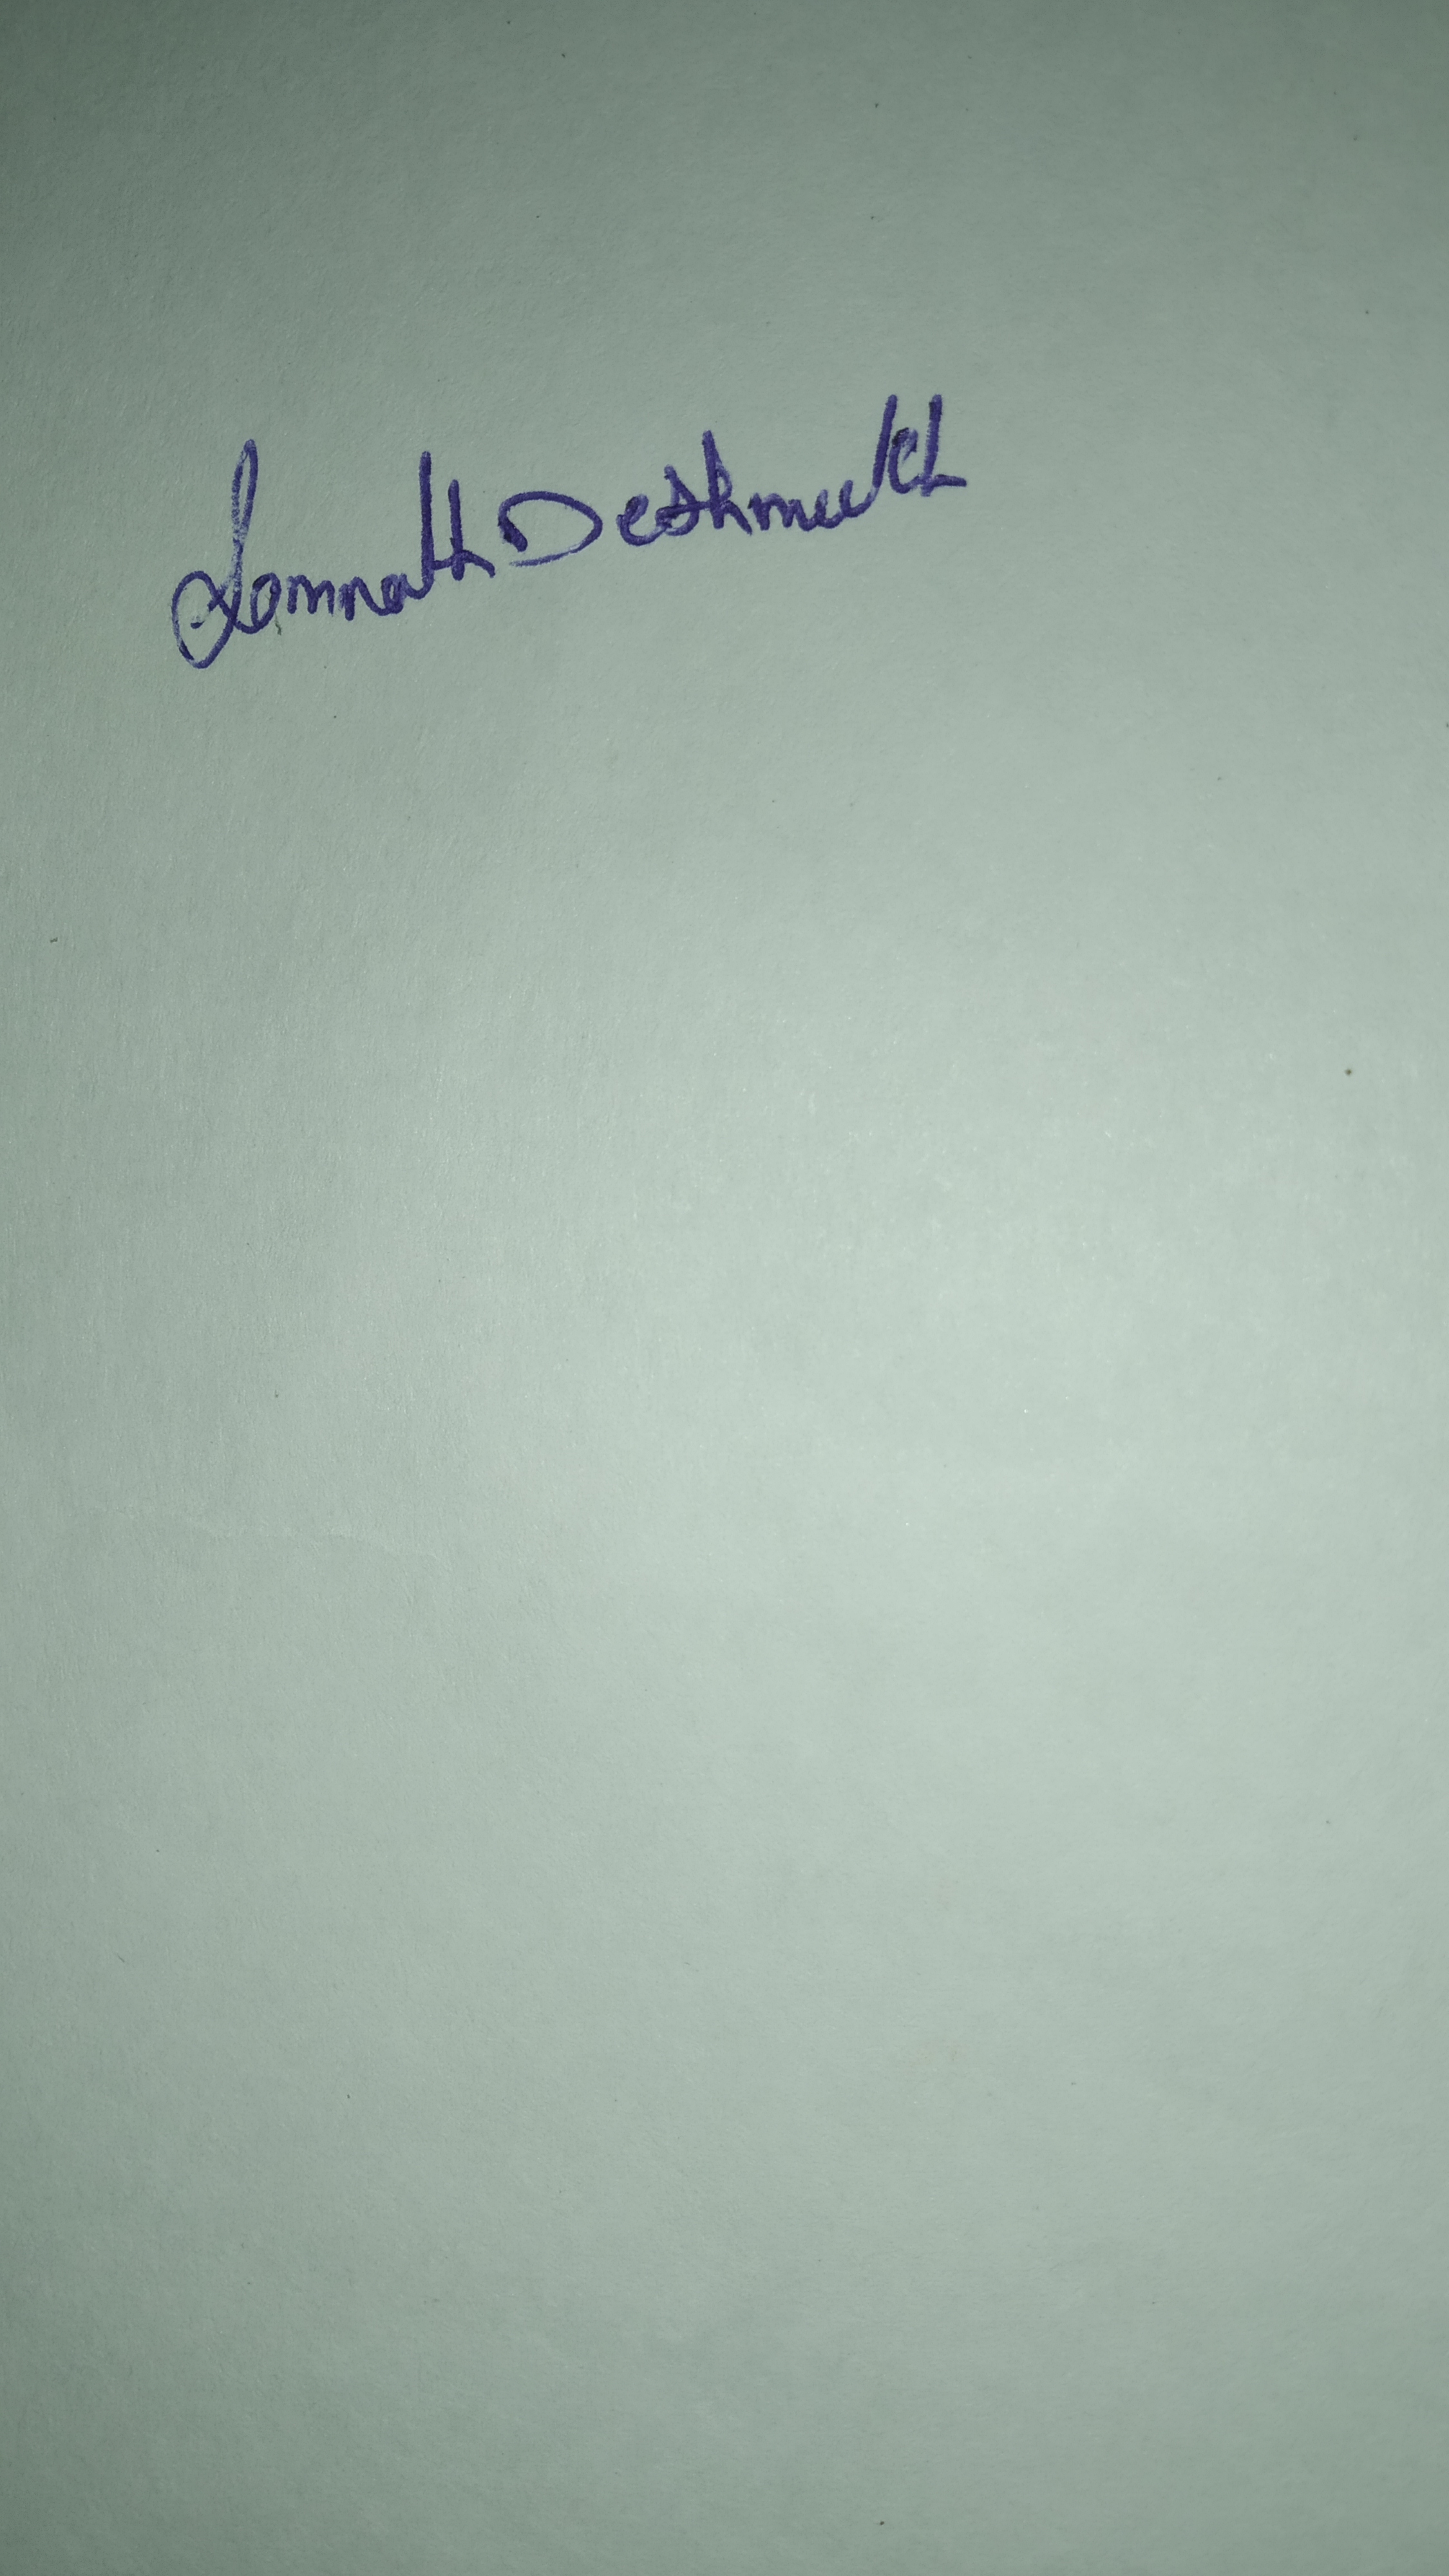 Somnath Deshmukh